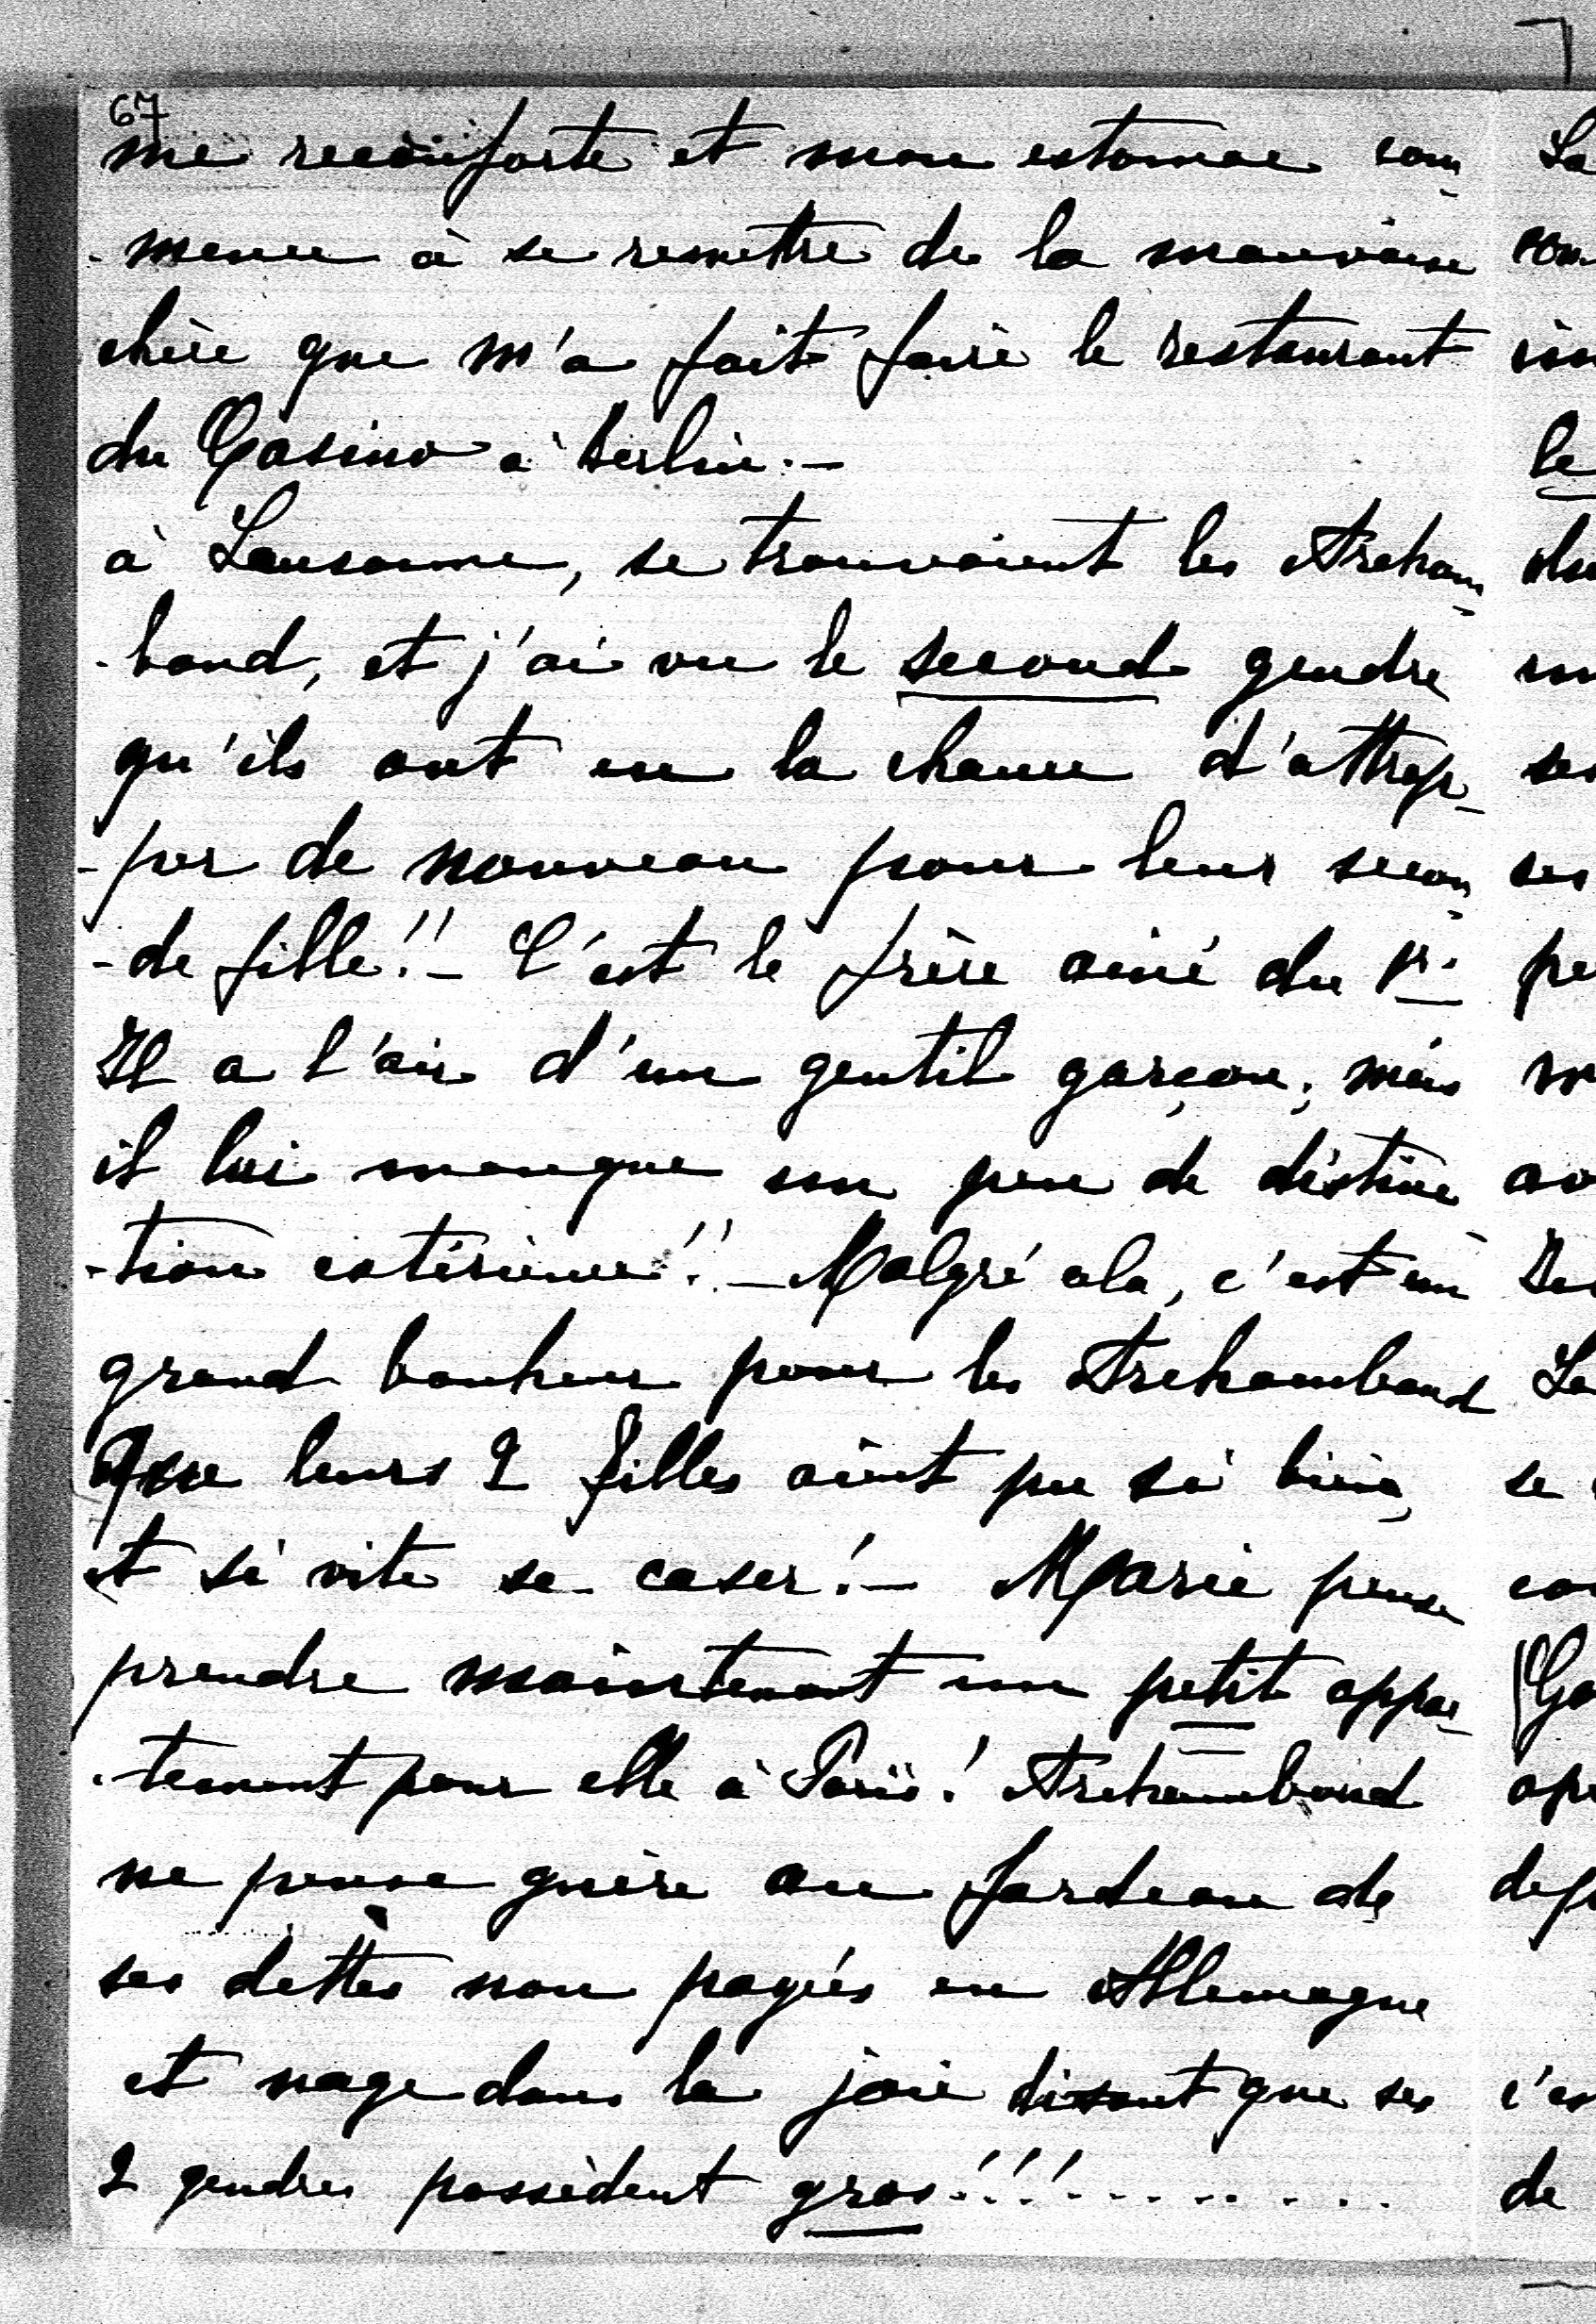 67
me réconforte et mon estomac com-
-mence à se remettre de la mauvaise
chère que m'a fait faire le restaurant
du Casino à Berlin.—
à Lausanne, se trouvaient les Archam-
-baud, et j'ai vu le second gendre
qu'ils ont eu la chance d'attrap-
-per de nouveau pour leur secon-
-de fille!!— C'est le frère ainé du 1r.
Il a l'air d'un gentil garçon; mais
il lui manque un peu de distinc-
-tion extérieure!!— Malgré cela, c'est un
grand bonheur pour les Archambaud
que leurs 2 filles aient pu si bien,
et si vite se caser!— Marie pense
prendre maintenant un petit appar-
-tement pour elle à Paris! Archambaud
ne pense guère au fardeau de
ses dettes non payées en Allemagne
et nage dans la joie disant que ses
2 gendres possèdent gros!!!..........